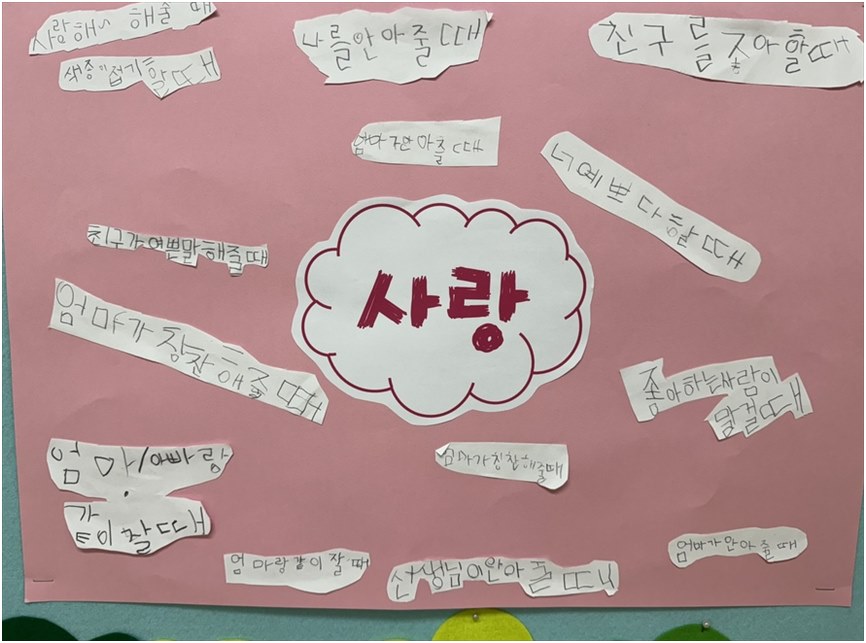 사랑해~ 해줄 때
나를 안아 줄 때
친구를 좋아할 때
색종이접기 할 때
엄마가 안아줄 때
너 예쁘다 할 때
친구가 예쁜말 해줄 때
사랑
엄마가 칭찬해줄 때
좋아하는 사람이
말걸 때
엄마/아빠랑
같이 잘 때
엄마가 칭찬해줄때
엄마랑 같이 잘 때
선생님이 안아 줄 때
엄마가 안아 줄 때